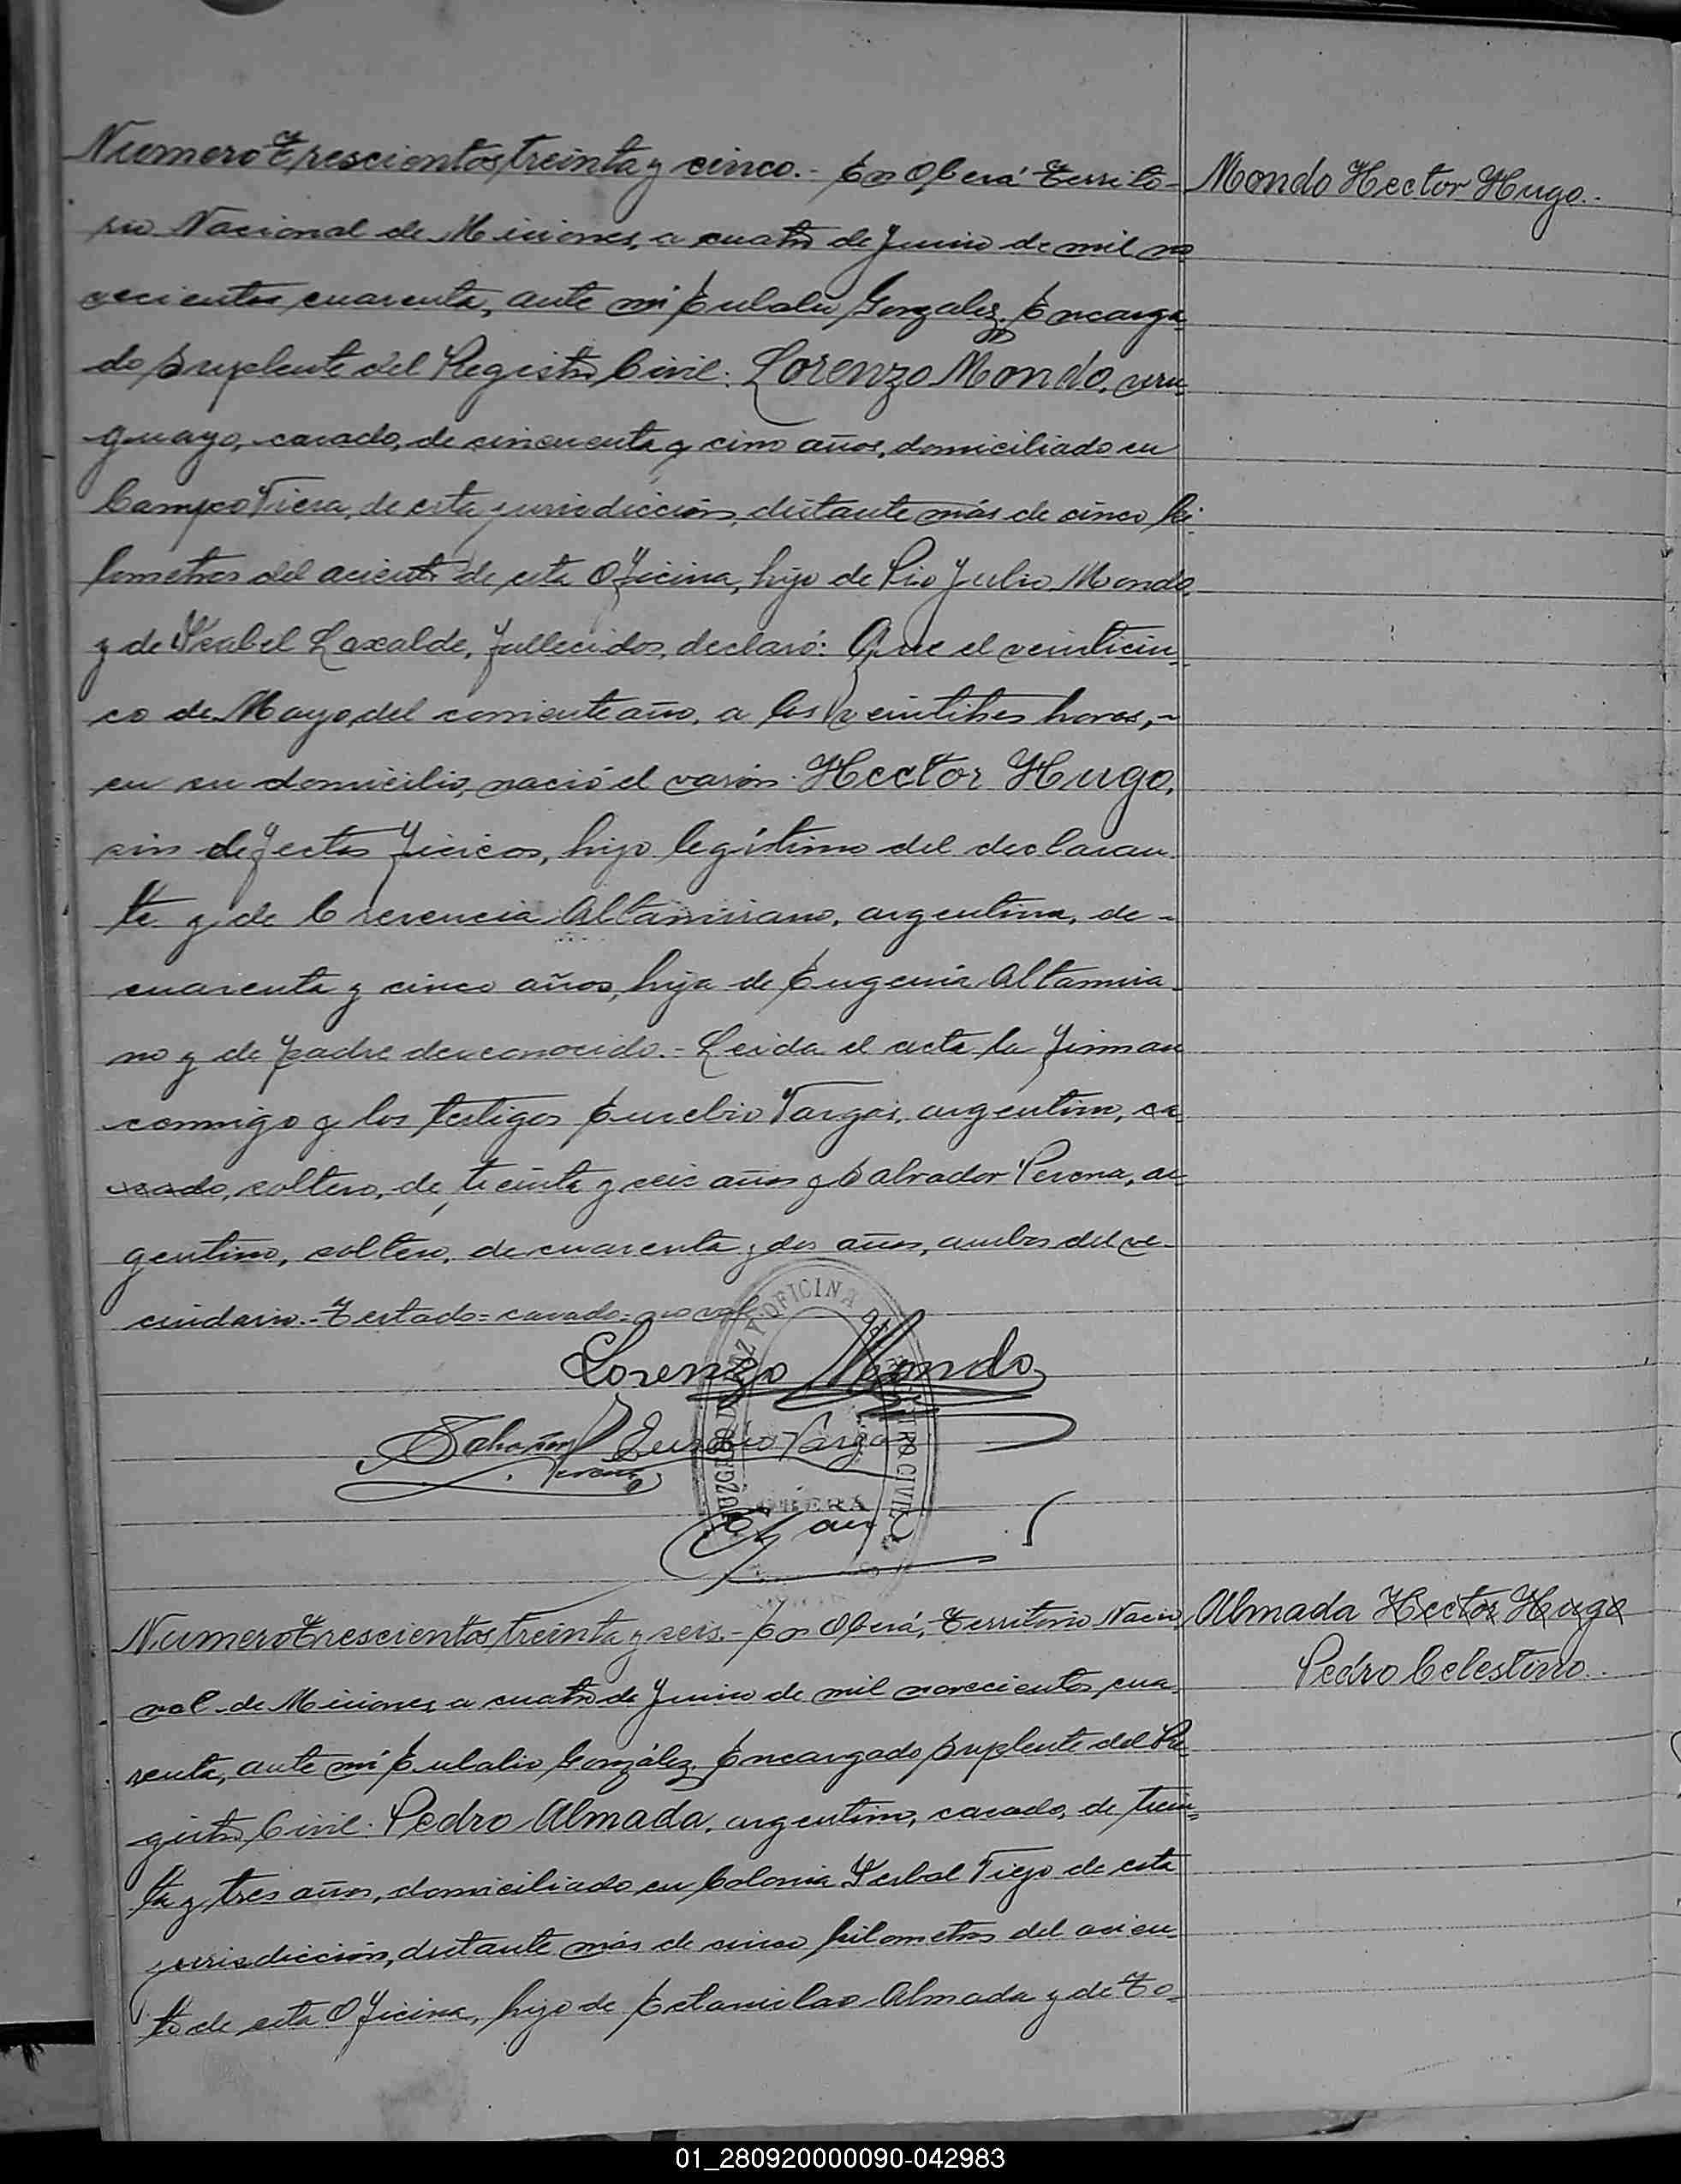 Numero Trescientos treinta y cinco.- En Oberá Territo-
Mondo Hector Hugo.-
rio Nacional de Misiones, a cuatro de Junio de mil no
vecientos cuarenta, ante mi Eulalio Gonzalez, Encarga-
do Suplente del Registro Civil: Lorenzo Mondo, uru-
guayo, casado, de cincuenta y cinco años, domiciliado en
Campo Viera, de esta jurisdicción, distante más de cinco ki-
lometros del aciento de esta Oficina, hijo de Pio Julio Mondo,
y de Isabel Laxalde, fallecidos, declaró: Que el veinticin-
co de Mayo, del corriente año, a las veintitres horas,-
en su domicilio, nació el varón Hector Hugo,
sin defectos ficicos, hijo legítimo del declaran-
te y de Crecencia Altamirano, argentina, de-
cuarenta y cinco años, hija de Eugenia Altamira-
no y de padre desconocido.- Leida el acta la firman
conmigo y los testigos Eusebio Vargas, argentino, ca-
sado, soltero, de treinta y seis años y Salvador Perona, ar-
gentino, soltero, de cuarenta y dos años, ambos del ve-
cindario.- Testado=casado=no vale
Lorenzo Mondo
Eusebio Vargas
JUZGADO DE PAZ Y OFICINA DEL REGISTRO CIVIL
OBERA
Numero Trescientos treinta y seis.- En Oberá, Territorio Nacio-
Almada Hector Hugo
Pedro Celestino.
nal de Misiones, a cuatro de Junio de mil novecientos cua-
renta, ante mi Eulalio González, Encargado Suplente del Re-
gistro Civil: Pedro Almada, argentino, casado, de trein-
ta y tres años, domiciliado en Colonia Yerbal Viejo de esta
jurisdicción, distante más de cinco kilometros del acien-
to de esta Oficina, hijo de Estanislao Almada y de To-
01_280920000090-042983